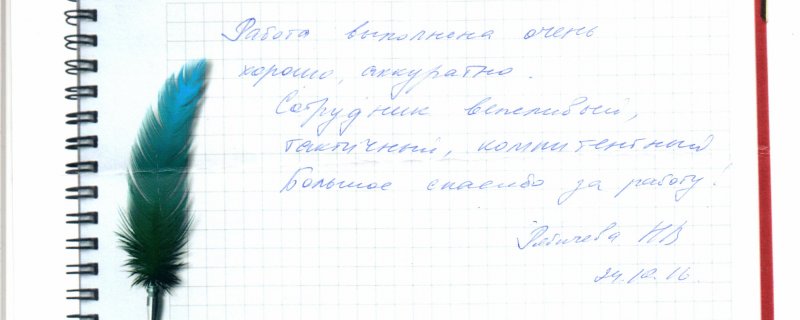 Работа выполнена очень
хорошо, аккуратно.
Сотрудник вежливый,
тактичный, компитентный
Большое спасибо за работу!
НВ
24.10.16.